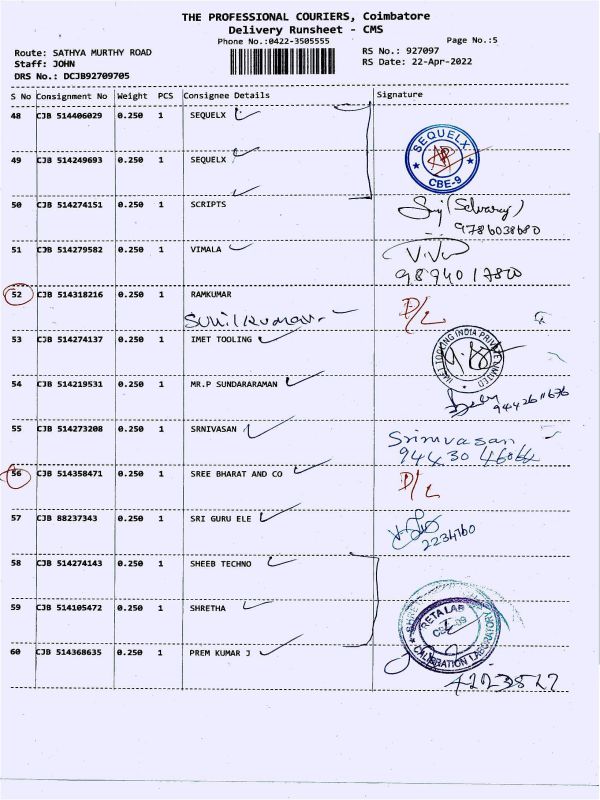 THE PROFESSIONAL COURIERS, Coimbatore
Delivery Runsheet - CMS
Phone No.:0422-3505555
Page No.:5
Route: SATHYA MURTHY ROAD
RS No.: 927097
Staff: JOHN
RS Date: 22-Apr-2022
DRS No.: DCJB92709705
S No Consignment No Weight PCS Consignee Details Signature
48 CJB 514406029 0.250 1 SEQUELX
SEQUELX
CBE-9
49 CJB 514249693 0.250 1 SEQUELX
50 CJB 514274151 0.250 1 SCRIPTS
(Selvaraj)
9786038680
51 CJB 514279582 0.250 1 VIMALA
9894017800
52 CJB 514318216 0.250 1 RAMKUMAR D/L
Sunilkumar
53 CJB 514274137 0.250 1 IMET TOOLING
IMET TOOLING INDIA PRIVATE LIMITED
54 CJB 514219531 0.250 1 MR.P SUNDARARAMAN
55 CJB 514273208 0.250 1 SRNIVASAN Srinivasan
56 CJB 514358471 0.250 1 SREE BHARAT AND CO D/L
57 CJB 88237343 0.250 1 SRI GURU ELE
2234760
58 CJB 514274143 0.250 1 SHEEB TECHNO
59 CJB 514105472 0.250 1 SHRETHA
60 CJB 514368635 0.250 1 PREM KUMAR J
CALIBRATION LABORATORY